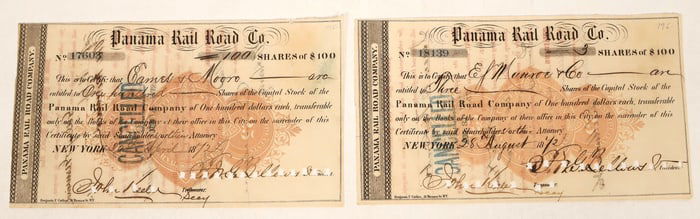 Panama Rail Road Co.
No 17603 100 SHARES of $100
This is to Certify that Eames & Moore are
entitled to One hundred Shares of the Capital Stock of the
Panama Rail Road Company of One Hundred dollars each, transferable
only on the Books of the Company at their office in this City on the surrender of this
Certificate by said Shareholders or their Attorney
NEW YORK 1872
Treasurer
Secy
PANAMA RAIL ROAD COMPANY.
CANCELLED
Panama Rail Road Co.
No 18139 3 SHARES of $100
This is to Certify that & Co are
entitled to Three Shares of the Capital Stock of the
Panama Rail Road Company of One Hundred dollars each, transferable
only on the Books of the Company at their office in this City on the surrender of this
Certificate by said Shareholders or their Attorney
NEW YORK 28 August 1872
President
Treasurer
Secy
PANAMA RAIL ROAD COMPANY.
CANCELLED